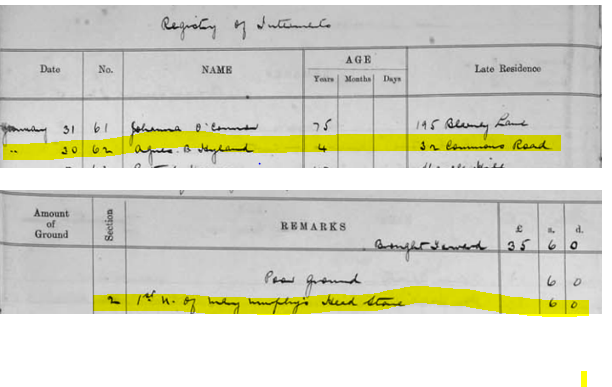 Registry of Interments
Date No. NAME AGE Late Residence
Years Months Days
January 31 61 Johanna O'Connor 75 195 Blarney Lane
" 30 62 Agnes B Hyland 4 32 Commons Road
Amount of Ground Section REMARKS £ s. d.
Brought Forward 35 6 0
Poor Ground 6 0
2 1st N. of Murphy's Head Stone 6 0